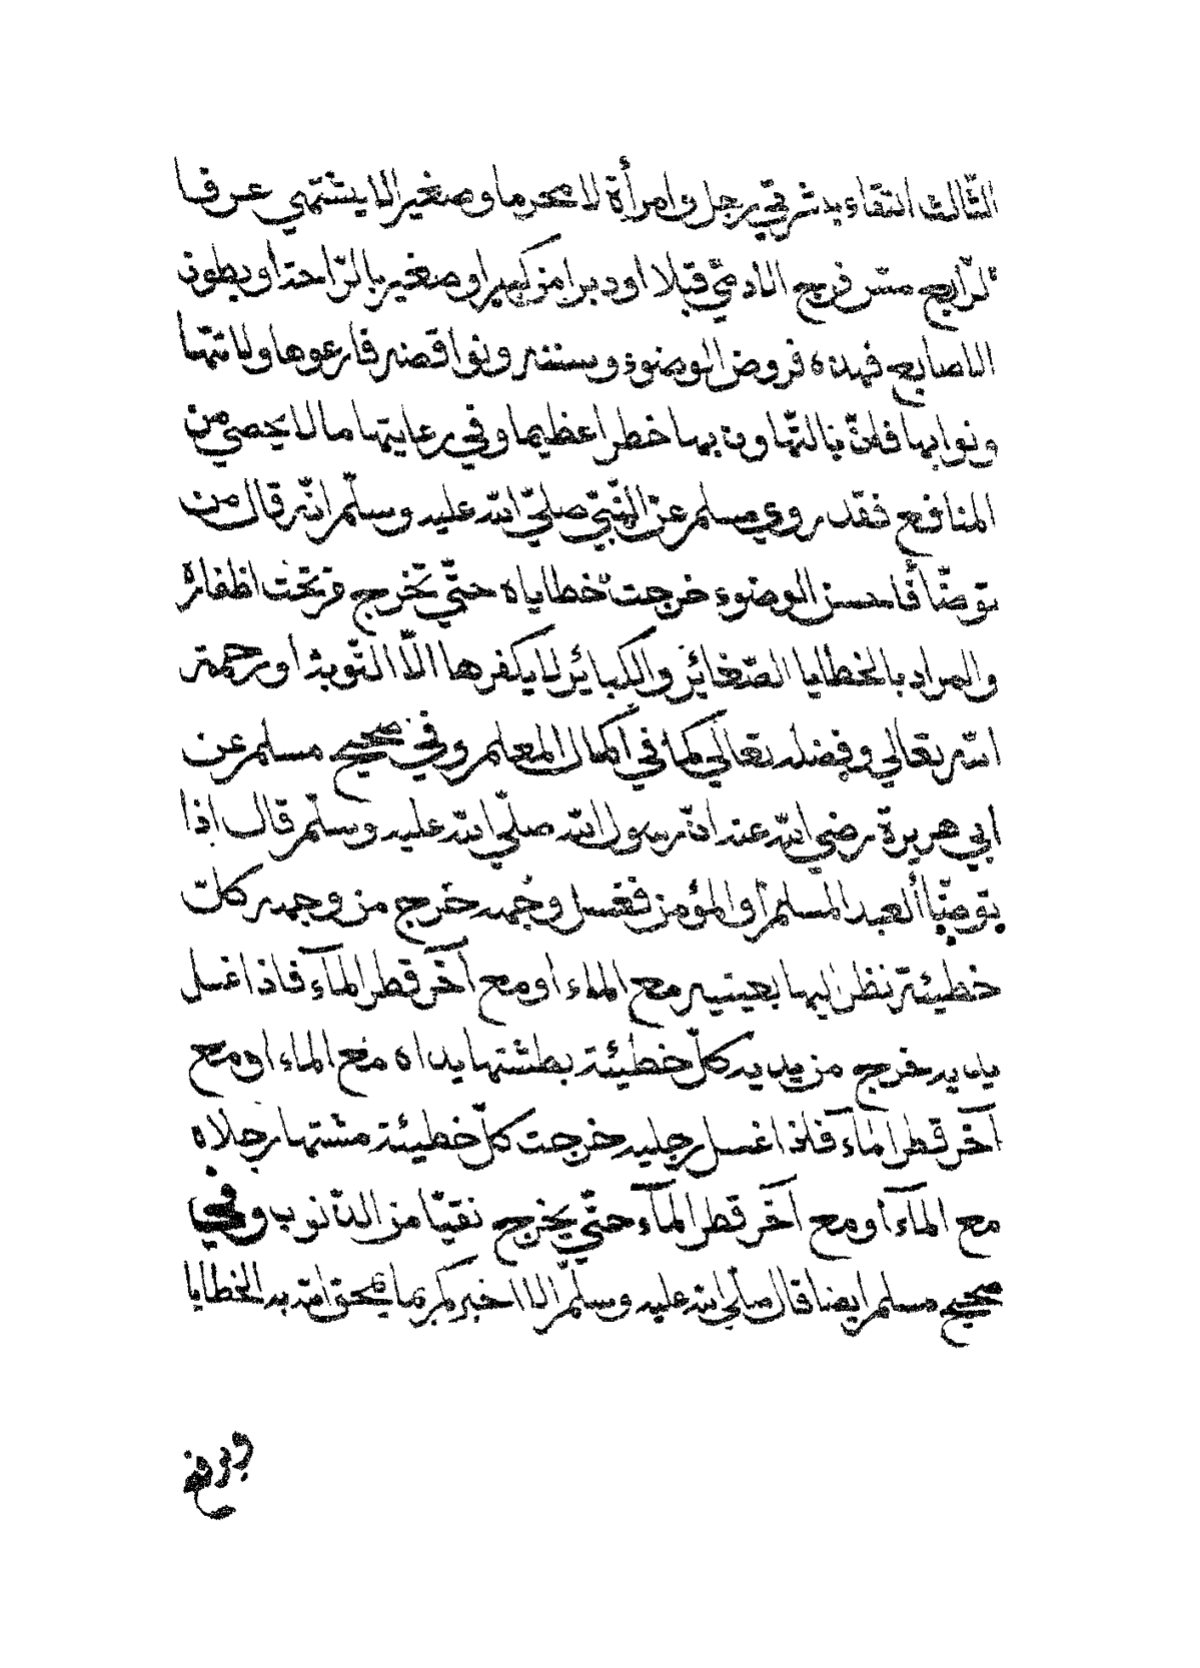 الثّالث التقاء بشرتي رجل وامرأة لا محرما وصغيرا لا يشتهى عرفا
الرّابع مسّ فرج الادميّ قبلا او دبرا من كبير او صغير بالرّاحة او بطون
الاصابع فهذه فروض الوضوء وسننه ونواقضه فارعوها ولا تتها
ونوا بها فانّ بالتّهاون بها خطرا عظيما وفي رعايتها مالا يحصي من
المنافع فقد روي مسلم عن النّبيّ صلّي الله عليه وسلّم انّه قال من
توضّأ فاحسن الوضوء خرجت خطاياه حتّي تخرج من تحت اظفاره
والمراد بالخطايا الصّغائر والكبائر لا يكفرها الاّ التّوبة او رحمة
الله تعالي وفضله تعالي كما في اكمال المعلم وفي صحيح مسلم عن
ابي هريرة رضي الله عنه انّ رسول الله صلّي الله عليه وسلّم قال اذا
توضّأ العبد المسلم أو المؤمن فغسل وجهه خرج من وجهه كلّ
خطيئة نظر اليها بعينيه مع الماء او مع آخر قطر المآء فاذا غسل
يديه خرج من يديه كلّ خطيئة بطشتها يداه مع الماء او مع
آخر قطر الماء فاذا غسل رجليه خرجت كلّ خطيئة مشتها رجلاه
مع المآء او مع آخر قطر المآء حتّي يخرج نقيّا من الذّنوب وفي
صحيح مسلم ايضا قال صلّي الله عليه وسلّم الا اخبركم بما يمحق الله به الخطايا
ويرفع